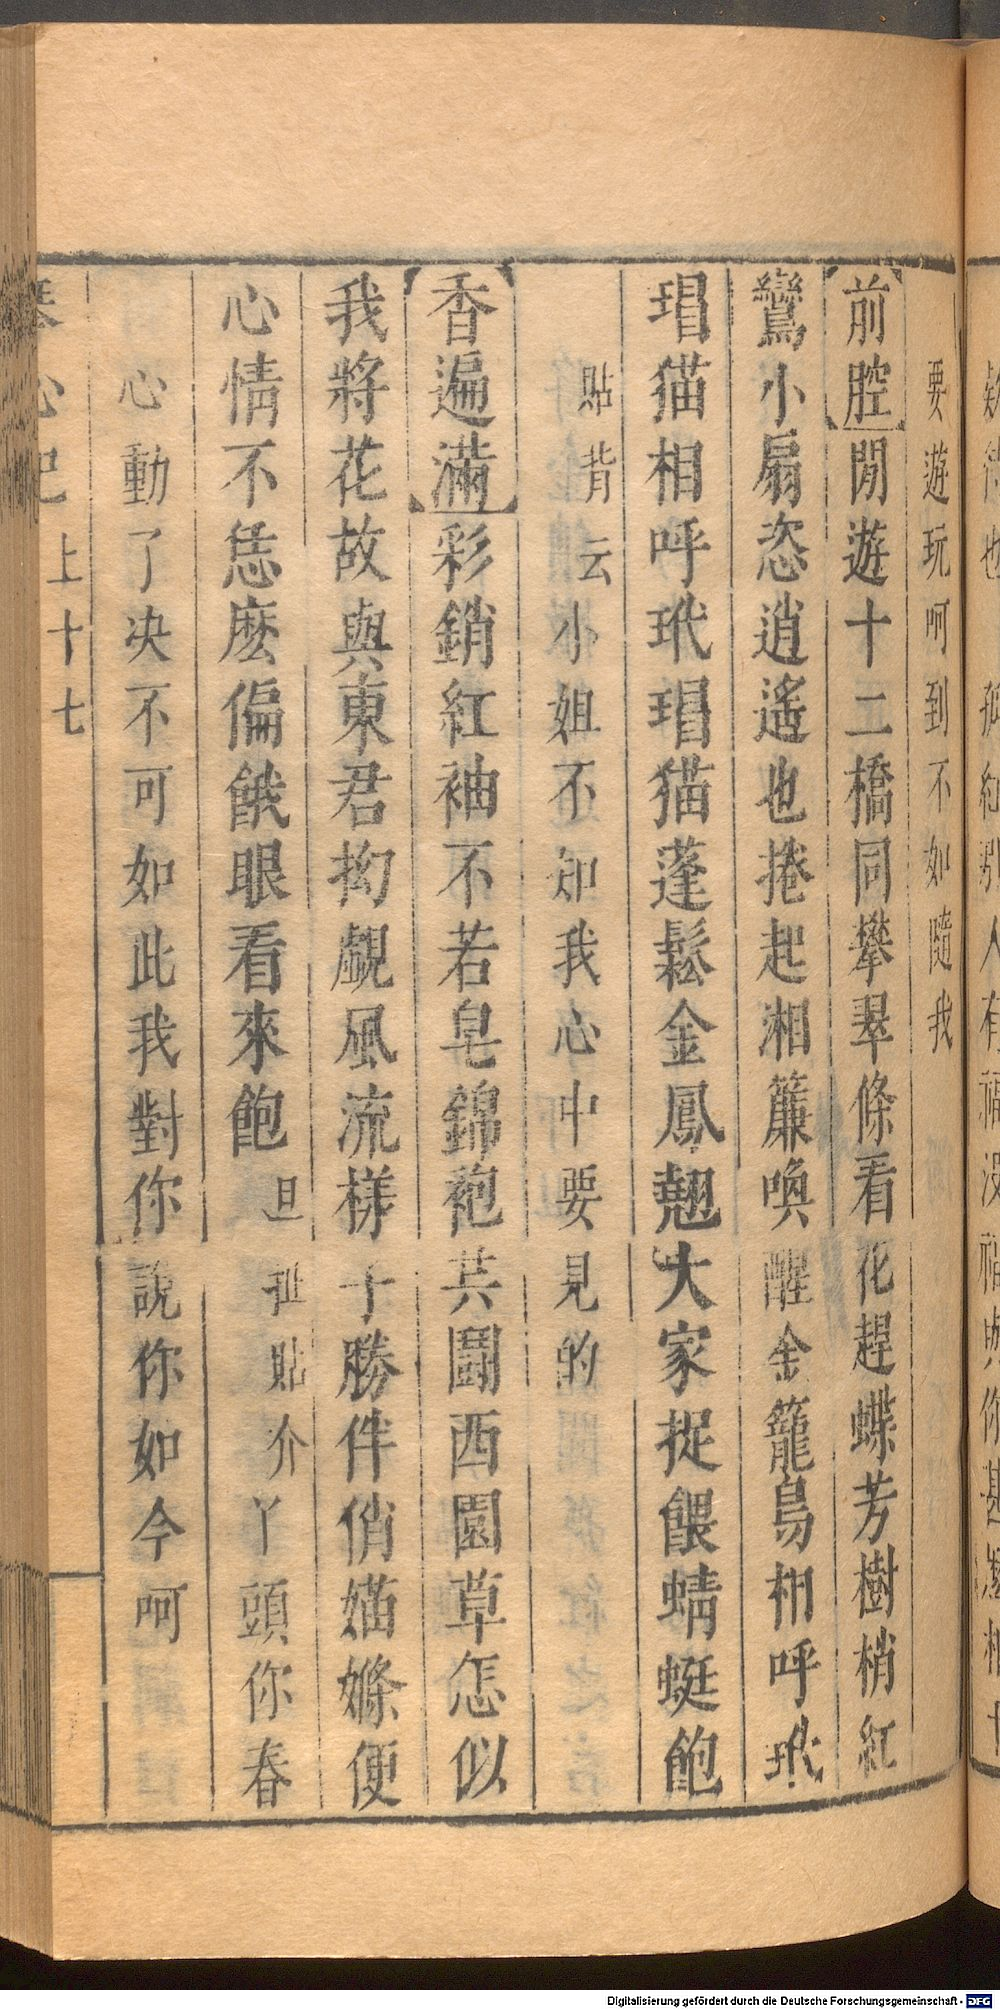 要遊玩呵到不如隨我
前腔閒遊十二橋同攀翠條看花趕蝶芳樹梢紅
鸞小扇恣逍遙也捲起湘簾喚醒金籠鳥相呼玳
瑁猫相呼玳瑁猫蓬鬆金鳳翹大家捉餵蜻蜓飽
貼背云小姐不知我心中要見的
香遍滿彩銷紅袖不若皂錦袍共鬪西園草怎似
我將花故與東君拗覷風流樣子勝伴俏媌嫐便
心情不恁麽偏餓眼看來飽旦扯貼介丫頭你春
心動了决不可如此我對你說你如今呵
琴心記 上十七
人有福沒福與你甚
Digitalisierung gefördert durch die Deutsche Forschungsgemeinschaft - DFG